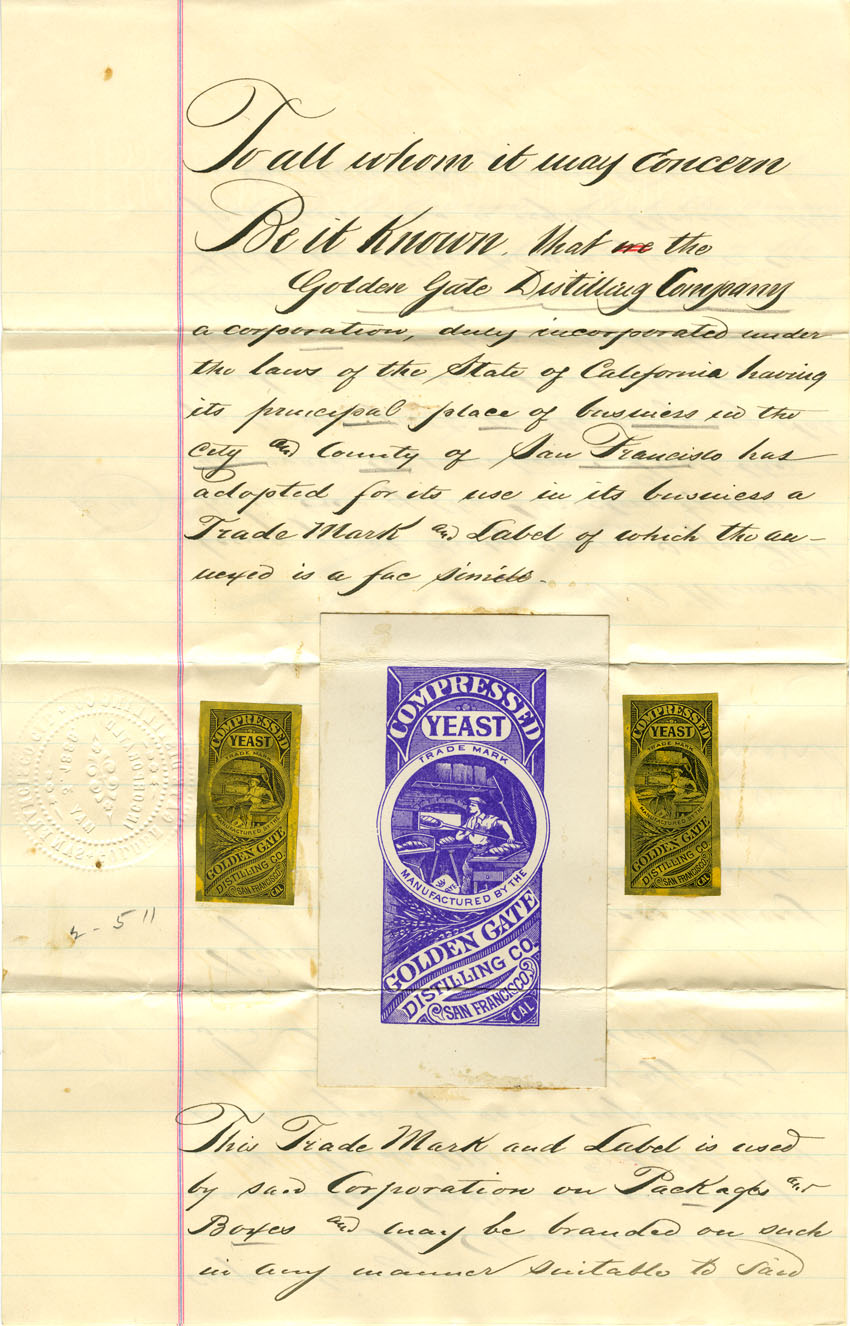 To all whom it may concern
Be it Known, that we the
Golden Gate Distilling Company
a corporation, duly incorporated under
the laws of the State of California having
its principal place of business in the
City and County of San Francisco has
adopted for its use in its business a
Trade Mark and Label of which the an-
nexed is a fac simile.
COMPRESSED
YEAST
TRADE MARK
MANUFACTURED BY THE
GOLDEN GATE
DISTILLING CO.
SAN FRANCISCO,
CAL
COMPRESSED
YEAST
TRADE MARK
MANUFACTURED BY THE
GOLDEN GATE
DISTILLING CO.
SAN FRANCISCO,
CAL
COMPRESSED
YEAST
TRADE MARK
MANUFACTURED BY THE
GOLDEN GATE
DISTILLING CO.
SAN FRANCISCO,
CAL
2-511
This Trade Mark and Label is used
by said Corporation on Packages and
Boxes and may be branded on such
in any manner suitable to said